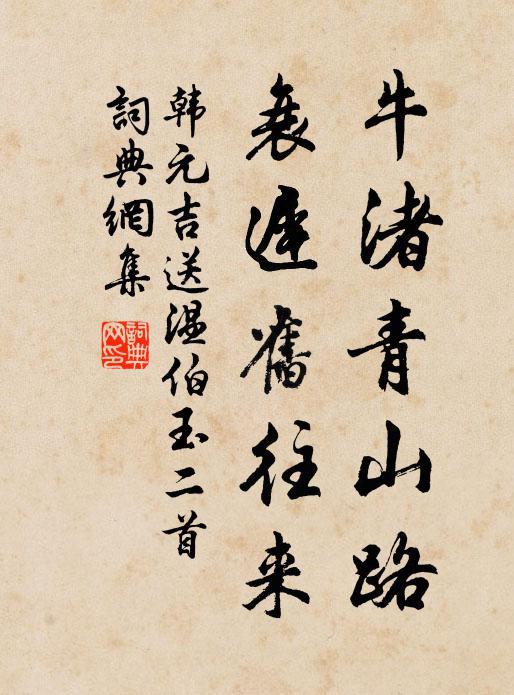 牛渚青山路
衰迟舊往来
韩元吉送温伯玉二首
詞典網集
詞典网印